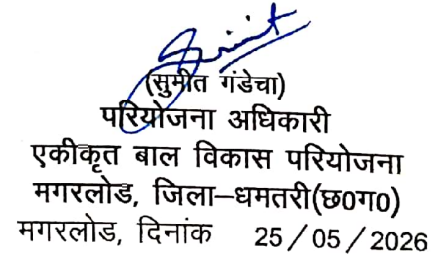 (सुमीत गंडेचा)
परियोजना अधिकारी
एकीकृत बाल विकास परियोजना
मगरलोड, जिला–धमतरी(छ0ग0)
मगरलोड, दिनांक 25 / 05 / 2026